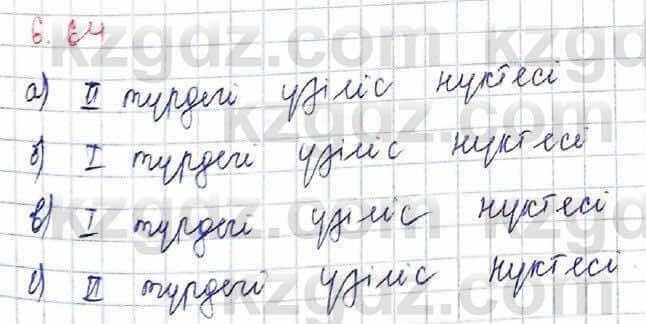 6.64
а) II түрдегі үзіліс нүктесі
б) I түрдегі үзіліс нүктесі
в) I түрдегі үзіліс нүктесі
с) II түрдегі үзіліс нүктесі
kzgdz.com